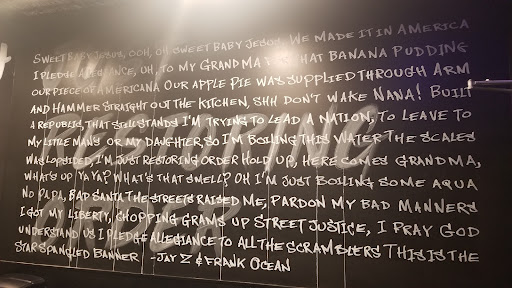 SWEET BABY JESUS, OOH, OH SWEET BABY JESUS, WE MADE IT IN AMERICA
I PLEDGE ALLEGIANCE, UH, TO MY GRANDMA THAT BANANA PUDDING
OUR PIECE OF AMERICANA OUR APPLE PIE WAS SUPPLIED THROUGH ARM
AND HAMMER STRAIGHT OUT THE KITCHEN, SHH DON'T WAKE NANA! BUILT
A REPUBLIC, THAT STILL STANDS I'M TRYING TO LEAD A NATION, TO LEAVE TO
MY LITTLE MAN'S OR MY DAUGHTER, SO I'M BOILING THIS WATER THE SCALES
WAS LOPSIDED, I'M JUST RESTORING ORDER HOLD UP, HERE COMES GRANDMA,
WHAT'S UP YAYA? WHAT'S THAT SMELL? OH I'M JUST BOILING SOME AQUA
NO PAPA, BAD SANTA THE STREETS RAISED ME, PARDON MY BAD MANNERS
I GOT MY LIBERTY, CHOPPING GRAMS UP STREET JUSTICE, I PRAY GOD
UNDERSTAND US I PLEDGE ALLEGIANCE TO ALL THE SCRAMBLERS THIS IS THE
STAR SPANGLED BANNER -JAY Z & FRANK OCEAN